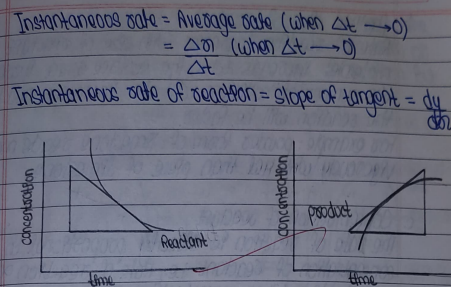 Instantaneous rate = Average rate (when Δt → 0)
= Δx (when Δt → 0)
Δt
Instantaneous rate of reaction = slope of tangent = dy
dx
concentration
Reactant
time
concentration
product
time